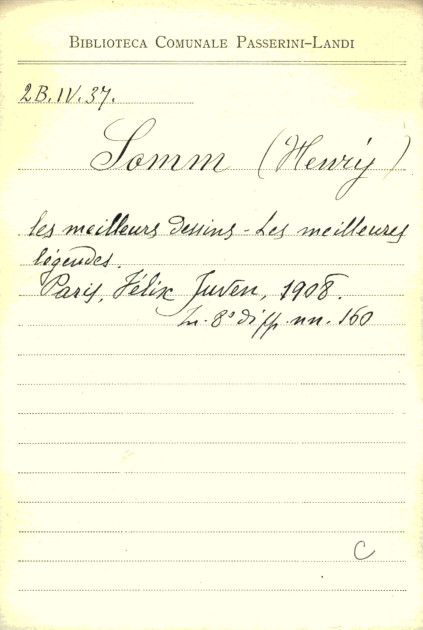 BIBLIOTECA COMUNALE PASSERINI-LANDI
2B.IV.37.
Somm (Henry)
Les meilleurs dessins - Les meilleures
légendes.
Paris, Félix Juven, 1908.
In. 8° di pp. nn. 160
C